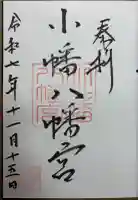 奉拝
小幡八幡宮
令和七年十一月十五日